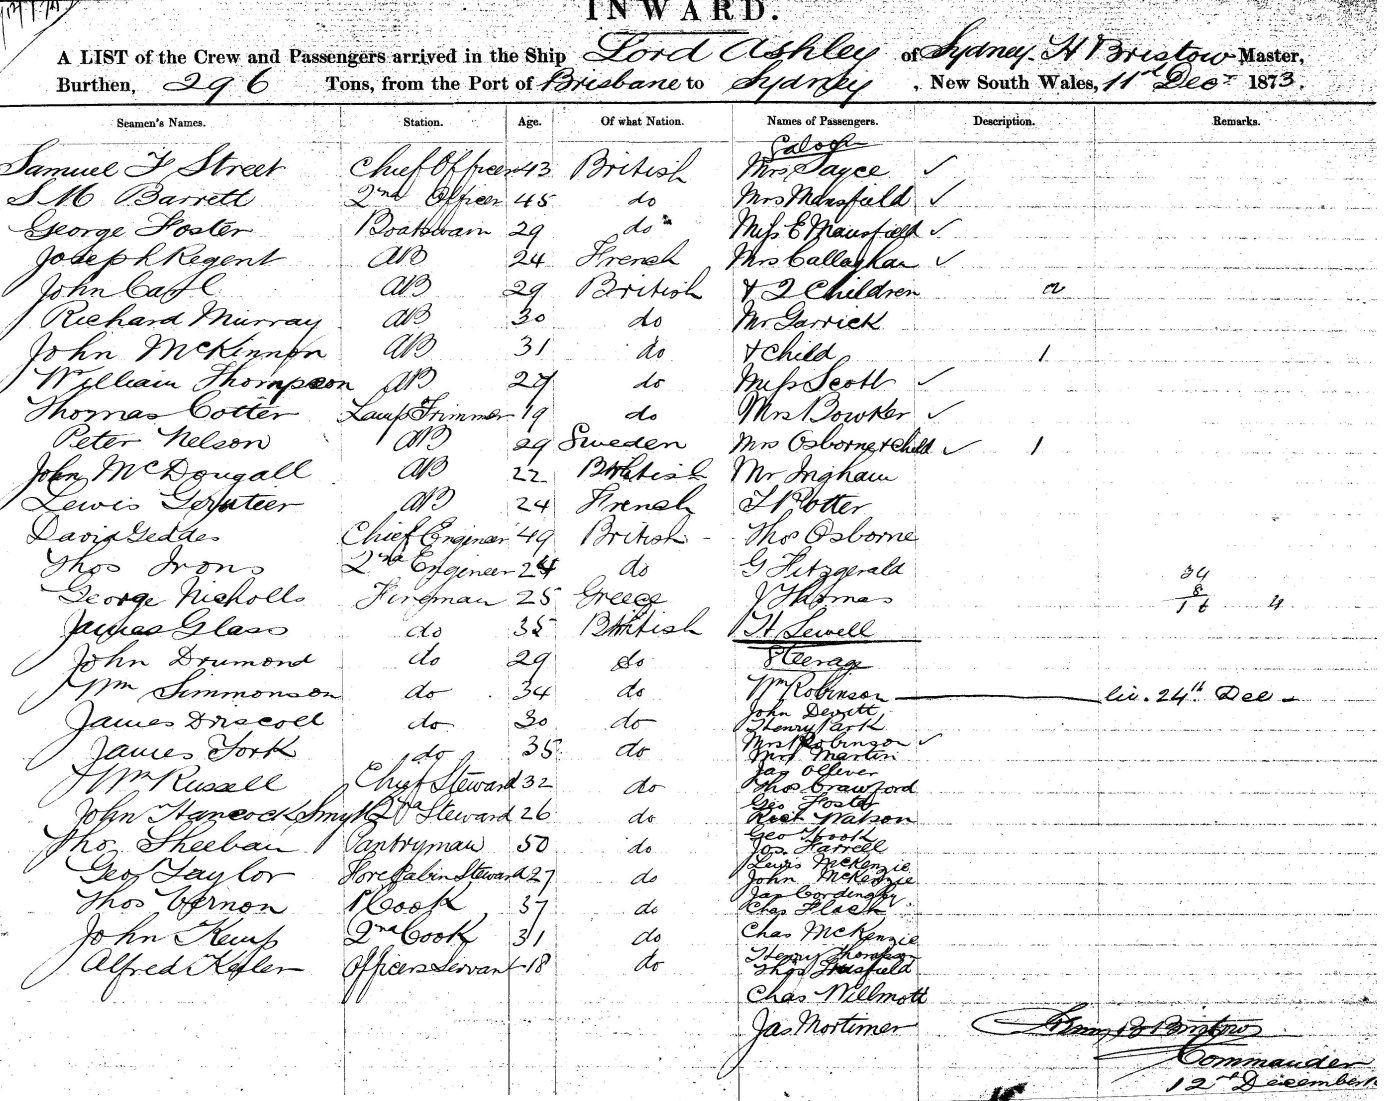 INWARD.
A LIST of the Crew and Passengers arrived in the Ship Lord Ashley of Sydney. H Bristow Master,
Burthen, 296 Tons, from the Port of Brisbane to Sydney, New South Wales, 11th Decr 1873.
Seamen's Names. Station. Age. Of what Nation. Names of Passengers. Description. Remarks.
Saloon
Samuel F Street Chief Officer 43 British Mrs Sayce ✓
S M Barrett 2nd Officer 45 do Mrs Mansfield ✓
George Foster Boatswain 29 do Miss E Mansfield ✓
Joseph Regent AB 24 French Mrs Callaghan ✓
John AB 29 British + 2 Children 2
Richard Murray AB 30 do Mr Garrick
John McKinnon AB 31 do + Child 1
William Thompson AB 27 do Miss Scott ✓
Thomas Cotter Lamp Trimmer 19 do Mrs Bowker ✓
Peter Nelson AB 29 Sweden Mrs Osborne + Child ✓ 1
John McDougall AB 22 British Mr Ingham
Lewis AB 24 French Potter
David Geddes Chief Engineer 49 British - Thos Osborne
Thos Irons 2nd Engineer 24 do G Fitzgerald 34
8
George Nicholls Fireman 25 Greece J Thomas 16 4
James Glass do 35 British H Sewell
John Drumond do 29 do Steerage
Wm Simmonson do 34 do Wm Robinson liv. 24th Dec -
James Driscoll do 30 do John Devitt
Henry Park
James York do 35 do Mrs Robinson ✓
Mrs Martin
Wm Russell Chief Steward 32 do Jas Olfever
Thos Crawford
Geo Foster
John Hancock Smyth 2nd Steward 26 do Rich Watson
Geo Hook
Thos Sheehan Pantryman 50 do Jos. Farrell
Lewis McKenzie
Geo Taylor Fore Cabin Steward 27 do John McKenzie
Jas Cordingly
Thos Vernon Cook 37 do Chas Flack
John Kemp 2nd Cook 31 do Chas McKenzie
Henry Thompson
Alfred Officers Servant 18 do Thos
Chas Willmott
Jas Mortimer Bristow
Commander
12th December